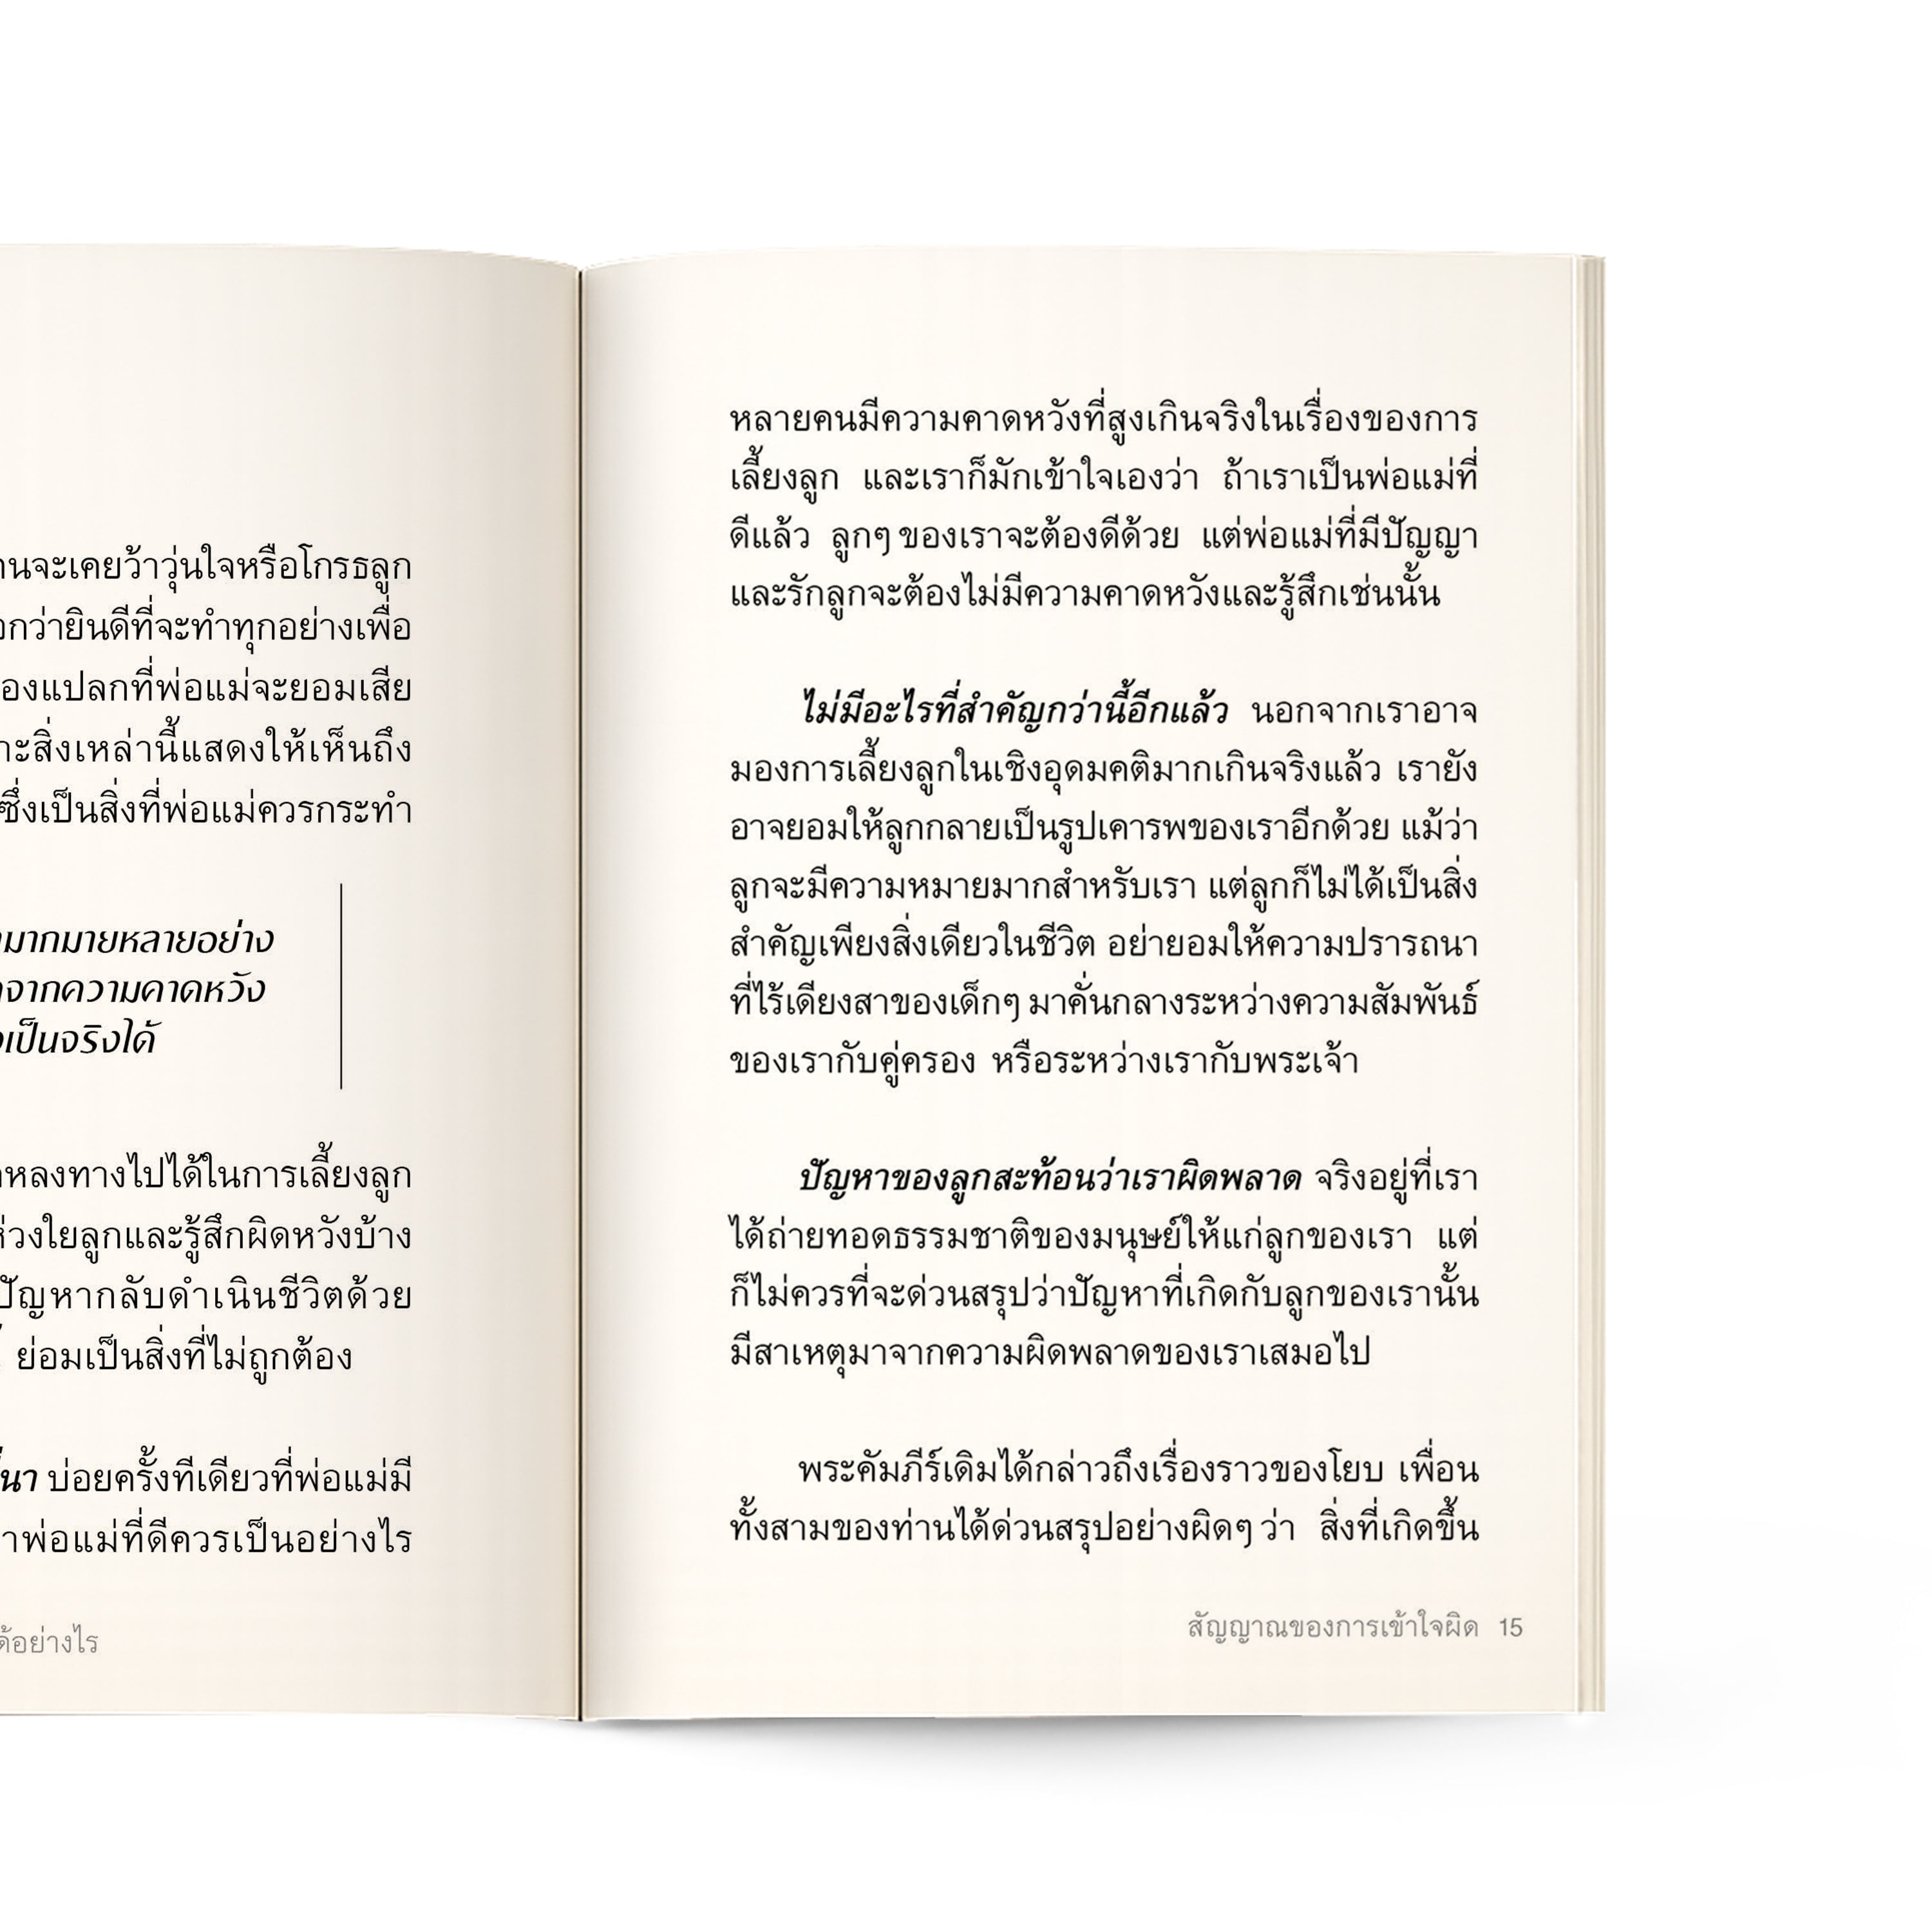 นจะเคยว้าวุ่นใจหรือโกรธลูก
กว่ายินดีที่จะทำทุกอย่างเพื่อ
องแปลกที่พ่อแม่จะยอมเสีย
าะสิ่งเหล่านี้แสดงให้เห็นถึง
ซึ่งเป็นสิ่งที่พ่อแม่ควรกระทำ
มากมายหลายอย่าง
จากความคาดหวัง
เป็นจริงได้
หลงทางไปได้ในการเลี้ยงลูก
ห่วงใยลูกและรู้สึกผิดหวังบ้าง
ปัญหากลับดำเนินชีวิตด้วย
ย่อมเป็นสิ่งที่ไม่ถูกต้อง
นา บ่อยครั้งทีเดียวที่พ่อแม่มี
าพ่อแม่ที่ดีควรเป็นอย่างไร
ด้อย่างไร
หลายคนมีความคาดหวังที่สูงเกินจริงในเรื่องของการ
เลี้ยงลูก และเราก็มักเข้าใจเองว่า ถ้าเราเป็นพ่อแม่ที่
ดีแล้ว ลูกๆ ของเราจะต้องดีด้วย แต่พ่อแม่ที่มีปัญญา
และรักลูกจะต้องไม่มีความคาดหวังและรู้สึกเช่นนั้น
ไม่มีอะไรที่สำคัญกว่านี้อีกแล้ว นอกจากเราอาจ
มองการเลี้ยงลูกในเชิงอุดมคติมากเกินจริงแล้ว เรายัง
อาจยอมให้ลูกกลายเป็นรูปเคารพของเราอีกด้วย แม้ว่า
ลูกจะมีความหมายมากสำหรับเรา แต่ลูกก็ไม่ได้เป็นสิ่ง
สำคัญเพียงสิ่งเดียวในชีวิต อย่ายอมให้ความปรารถนา
ที่ไร้เดียงสาของเด็กๆ มาคั่นกลางระหว่างความสัมพันธ์
ของเรากับคู่ครอง หรือระหว่างเรากับพระเจ้า
ปัญหาของลูกสะท้อนว่าเราผิดพลาด จริงอยู่ที่เรา
ได้ถ่ายทอดธรรมชาติของมนุษย์ให้แก่ลูกของเรา แต่
ก็ไม่ควรที่จะด่วนสรุปว่าปัญหาที่เกิดกับลูกของเรานั้น
มีสาเหตุมาจากความผิดพลาดของเราเสมอไป
พระคัมภีร์เดิมได้กล่าวถึงเรื่องราวของโยบ เพื่อน
ทั้งสามของท่านได้ด่วนสรุปอย่างผิดๆ ว่า สิ่งที่เกิดขึ้น
สัญญาณของการเข้าใจผิด 15